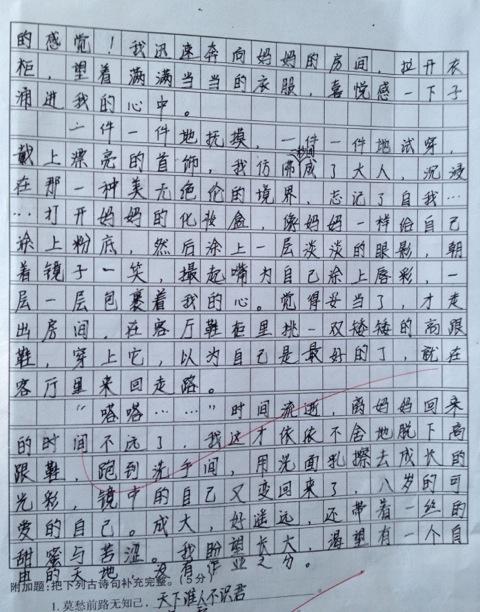 的感觉！我迅速奔向妈妈的房间，拉开衣
柜，望着满满当当的衣服，喜悦感一下子
涌进我的心中。
一件一件地抚摸，一件一件地试穿，
戴上漂亮的首饰，我仿佛瞬间成了大人，沉浸
在那一种美无绝伦的境界，忘记了自我…
…打开妈妈的化妆盒，像妈妈一样给自己
涂上粉底，然后涂上一层淡淡的眼影，朝
着镜子一笑，撮起嘴为自己涂上唇彩，一
层一层包裹着我的心。觉得妥当了，才走
出房间，在客厅鞋柜里挑一双矮矮的高跟
鞋，穿上它，以为自己是最好的了，就在
客厅里来回走路。
“嗒嗒……”时间流逝，离妈妈回来
的时间不远了，我这才依依不舍地脱下高
跟鞋，跑到洗手间，用洗面乳擦去成长的
光彩，镜中的自己又变回来了，八岁的可
爱的自己。成大，好遥远，还带着一丝的
甜蜜与苦涩。我盼望长大，渴望有一个自
由的天地，没有作业之分。
附加题：把下列古诗句补充完整。（5分）
1. 莫愁前路无知己，天下谁人不识君